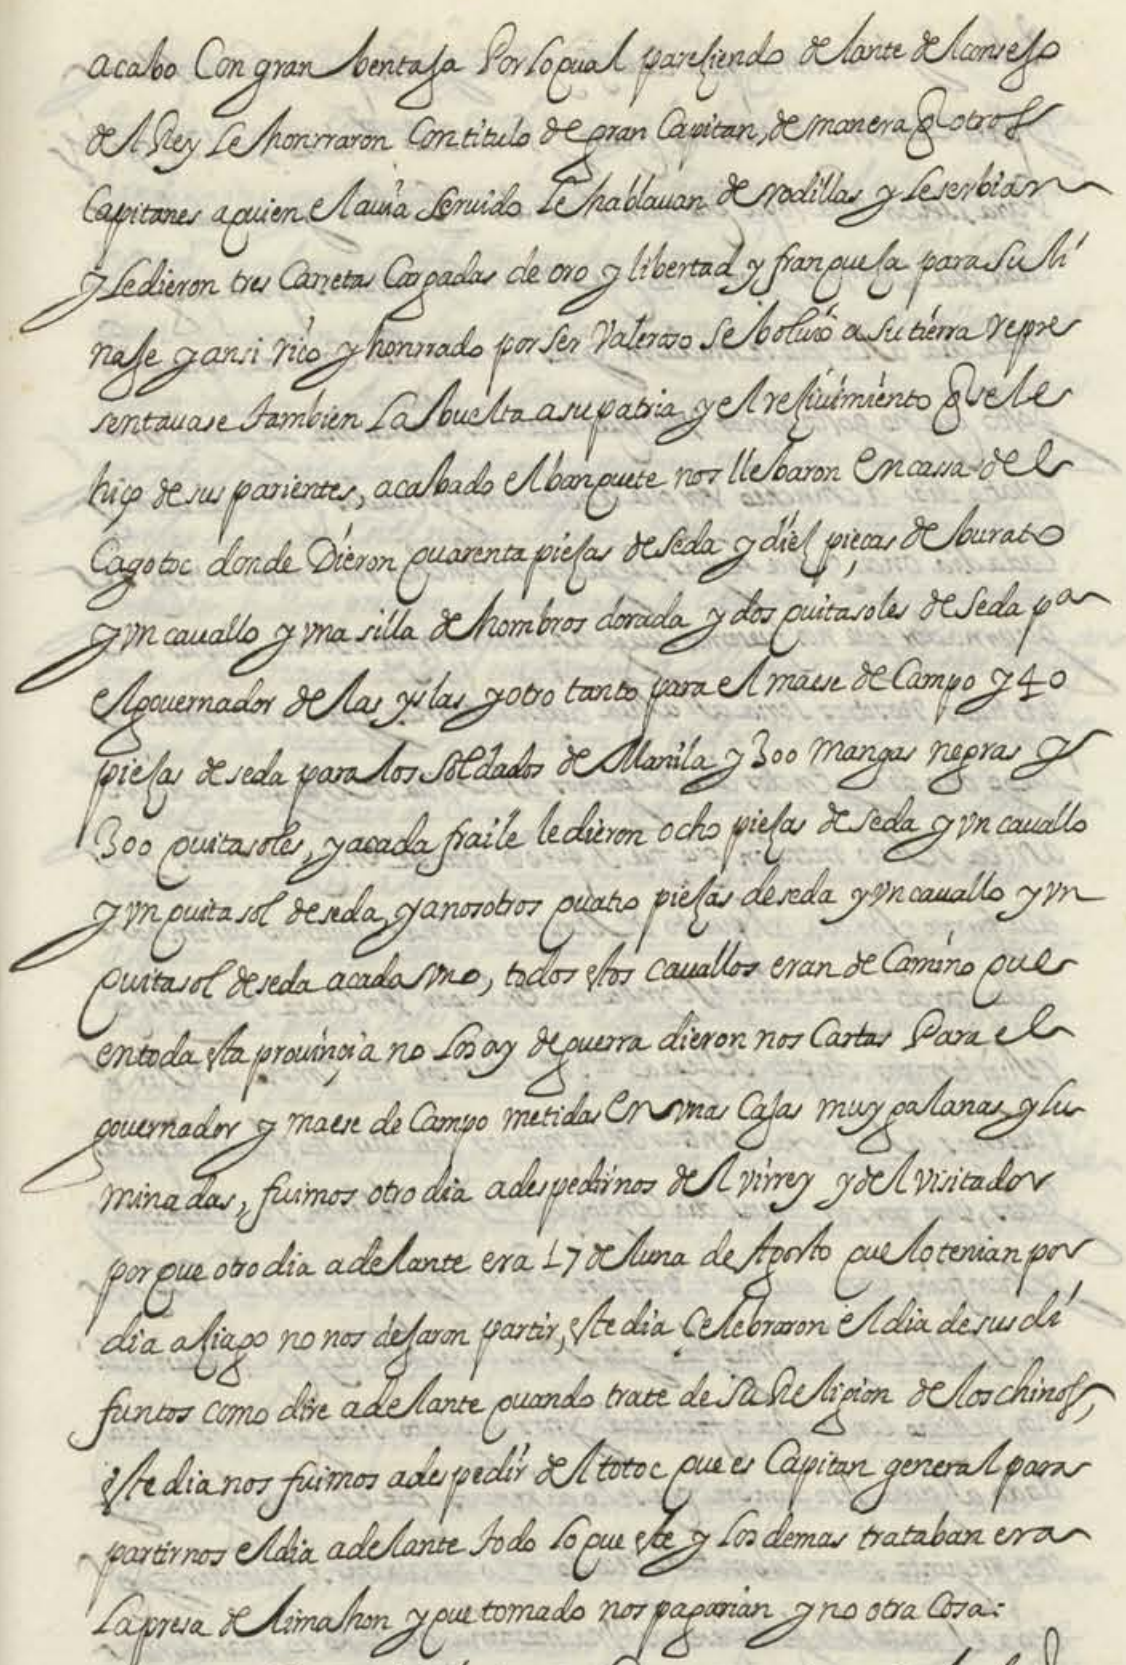 acabo Con gran bentaja Por lo qual paresiendo delante del consejo
del Rey le honrraron Con titulo de gran Capitan, de manera q otros
Capitanes a quien el auia seruido le hablauan de rodillas y le serbian
y le dieron tres Carretas Cargadas de oro y libertad y franquesa para su li
naje y ansi rico y honrrado por ser Valeroso se boluio a su tierra repre
sentauase tambien La buelta a su patria y el resiuimiento q se le
hiço de sus parientes, acabado el banquete nos llebaron en cassa del
Cagotoc donde Dieron quarenta piesas de seda y diez pieças de burato
y vn cauallo y vna silla de hombros dorada y dos quitasoles de seda pa
el gouernador de las yslas y otro tanto para el maese de Campo y 40
piesas de seda para los soldados de Manila y 300 mangas negras y
300 quitasoles, y a cada fraile le dieron ocho piesas de seda y vn cauallo
y vn quita sol de seda, y a nosotros quatro piesas de seda y vn cauallo y vn
quitasol de seda a cada vno, todos estos cauallos eran de Camino que
en toda esta prouinçia no los ay de guerra dieron nos Cartas Para el
gouernador y maese de Campo metidas en vnas Cajas muy galanas y lu
minadas, fuimos otro dia a despedirnos del virrey y del visitador
porque otro dia adelante era 17 de luna de Agosto que lo tenian por
dia asiago no nos dejaron partir, este dia çelebraron el dia de sus di
funtos como dire adelante quando trate de su Religion de los chinos,
este dia nos fuimos a despedir del totoc que es Capitan general para
partirnos el dia adelante todo lo que este y los demas trataban era
La presa de Limahon y que tomado nos pagarian y no otra Cosa: